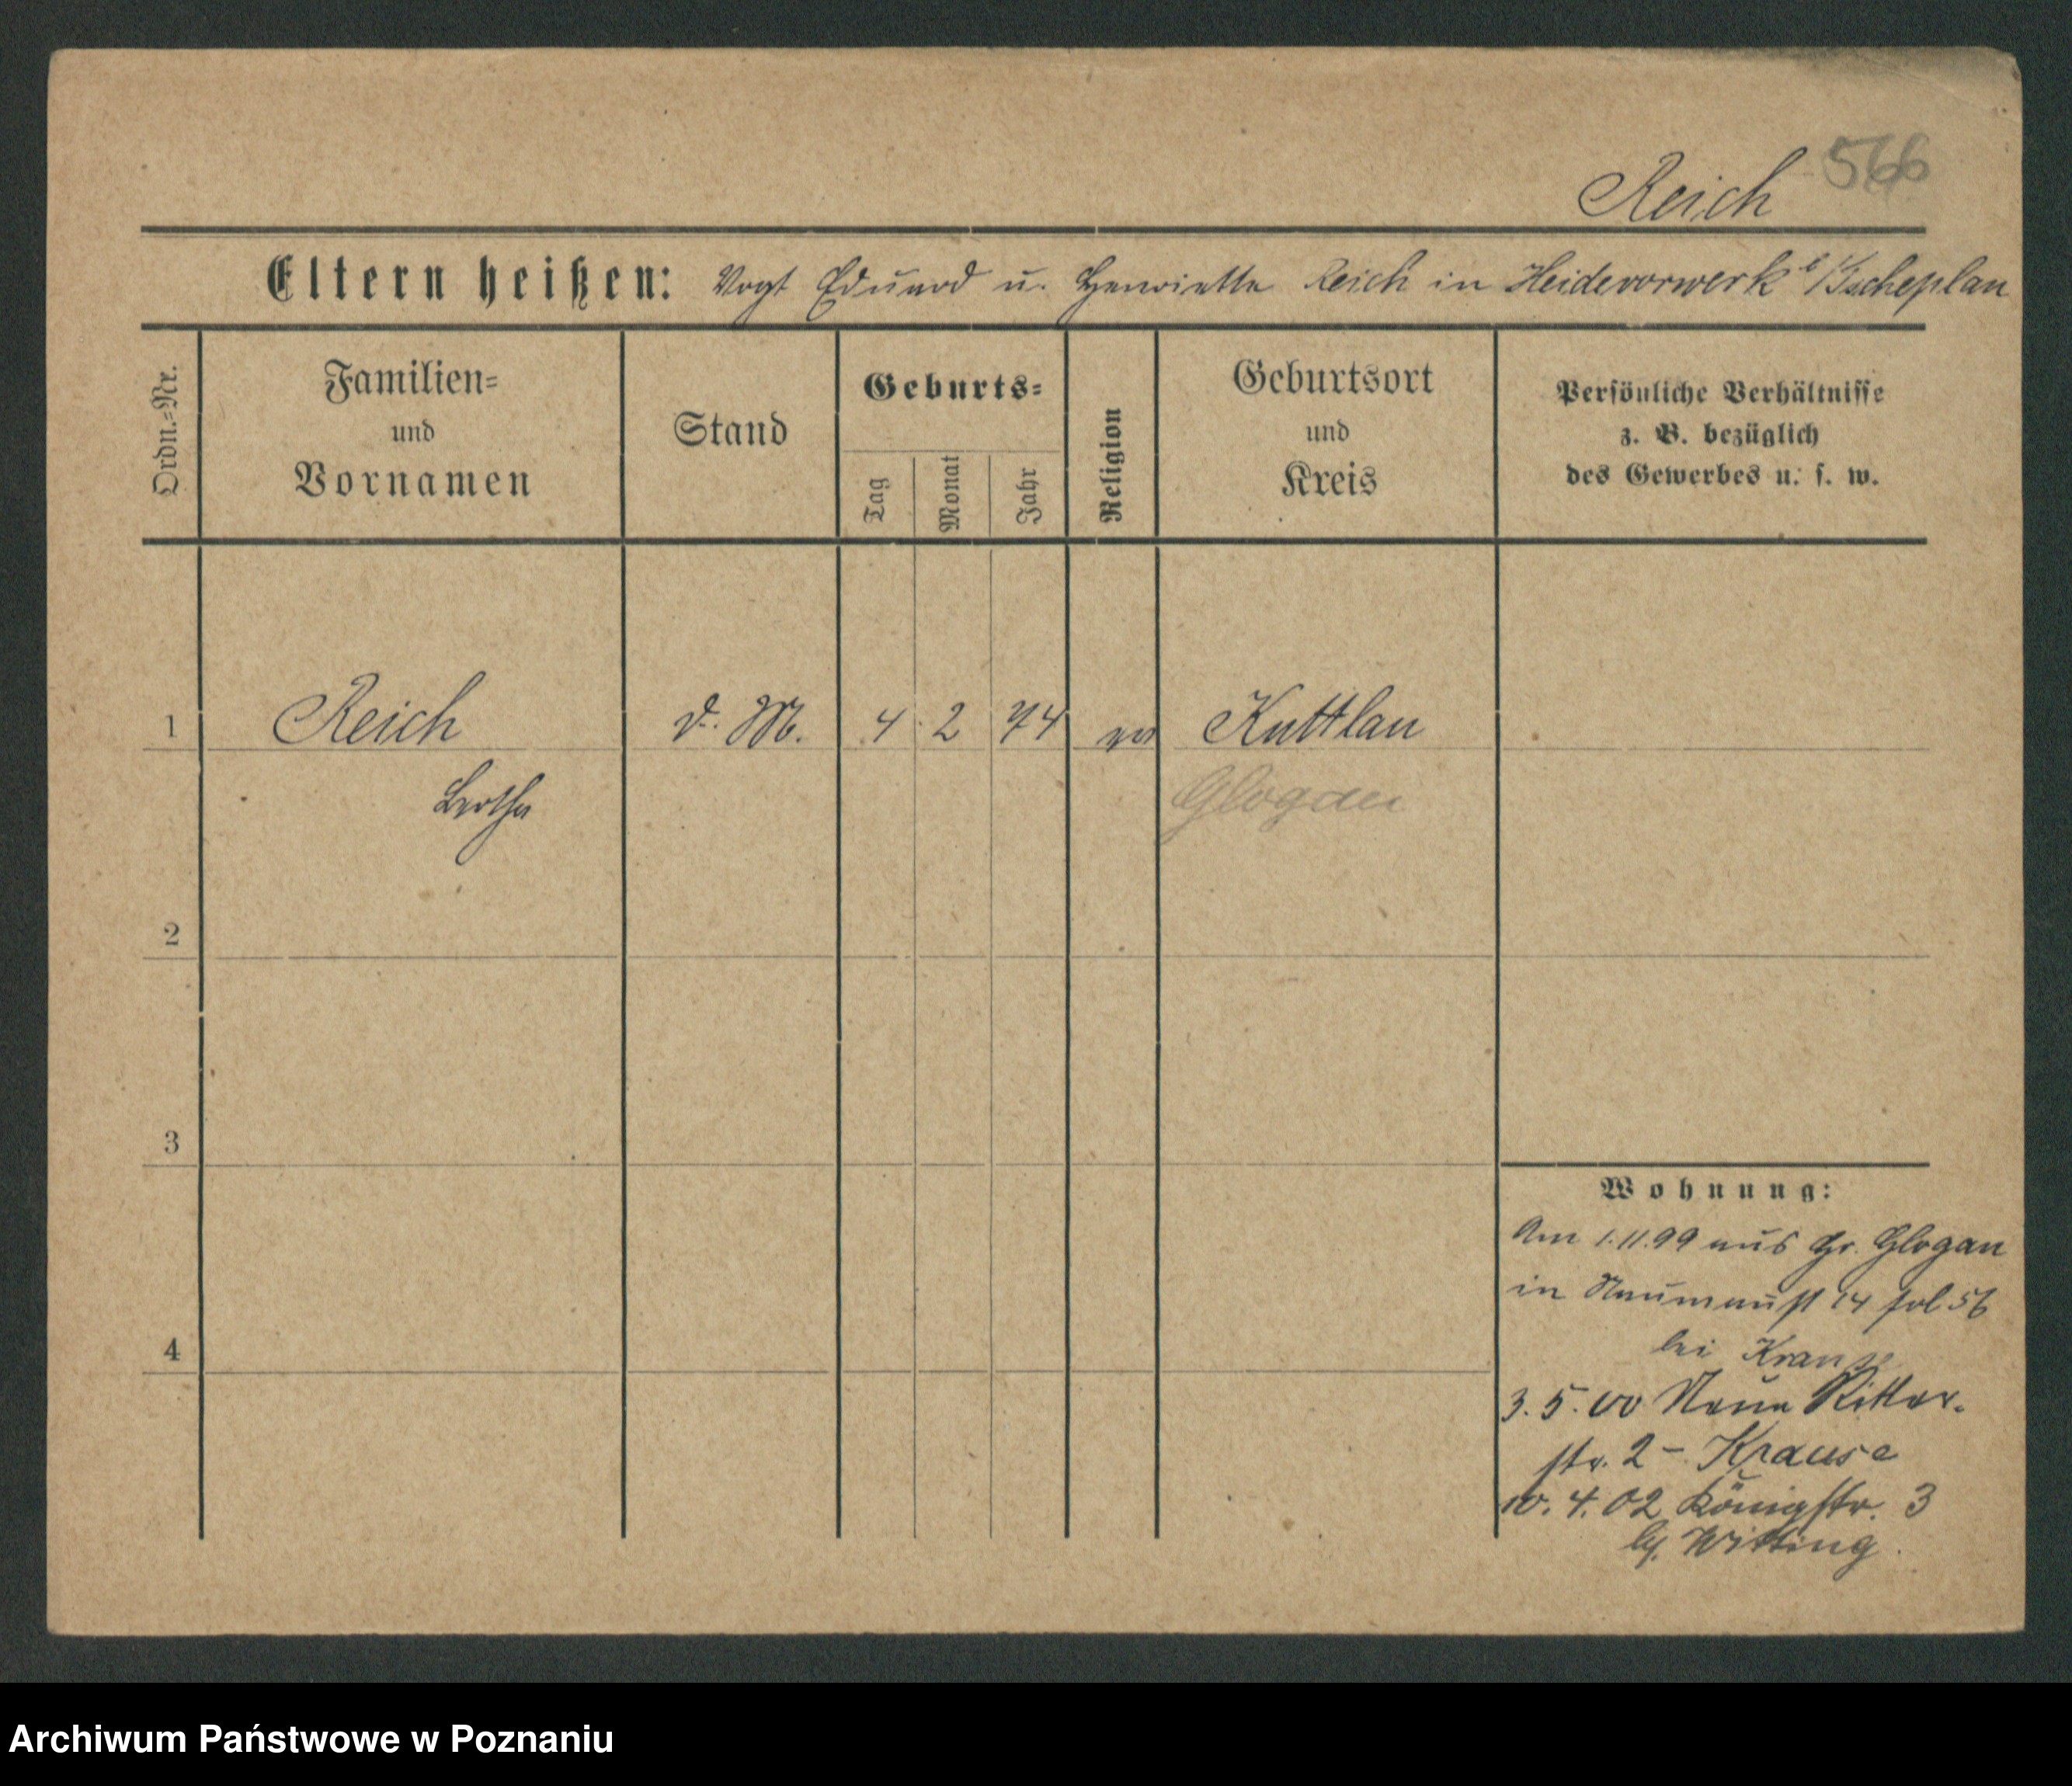 Reich 566
Eltern heißen: Vogt Eduard u. Henriette Reich in Heidevorwerk b/Tscheplau
Ordn.=Nr.
Familien=
und
Vornamen
Stand
Geburts=
Tag
Monat
Jahr
Religion
Geburtsort
und
Kreis
Persönliche Verhältnisse
z. B. bezüglich
des Gewerbes u. s. w.
1 Reich d. M. 4 2 74 ev Kuttlau
Bertha Glogau
2
3
4
Wohnung:
Am 1.11.99 aus Gr. Glogau
in Naumannst 14 fol 56
bei Kraus
3.5.00 Neue Ritter-
str. 2 - Krause
10.4.02 Königstr. 3
bei Witting
Archiwum Państwowe w Poznaniu